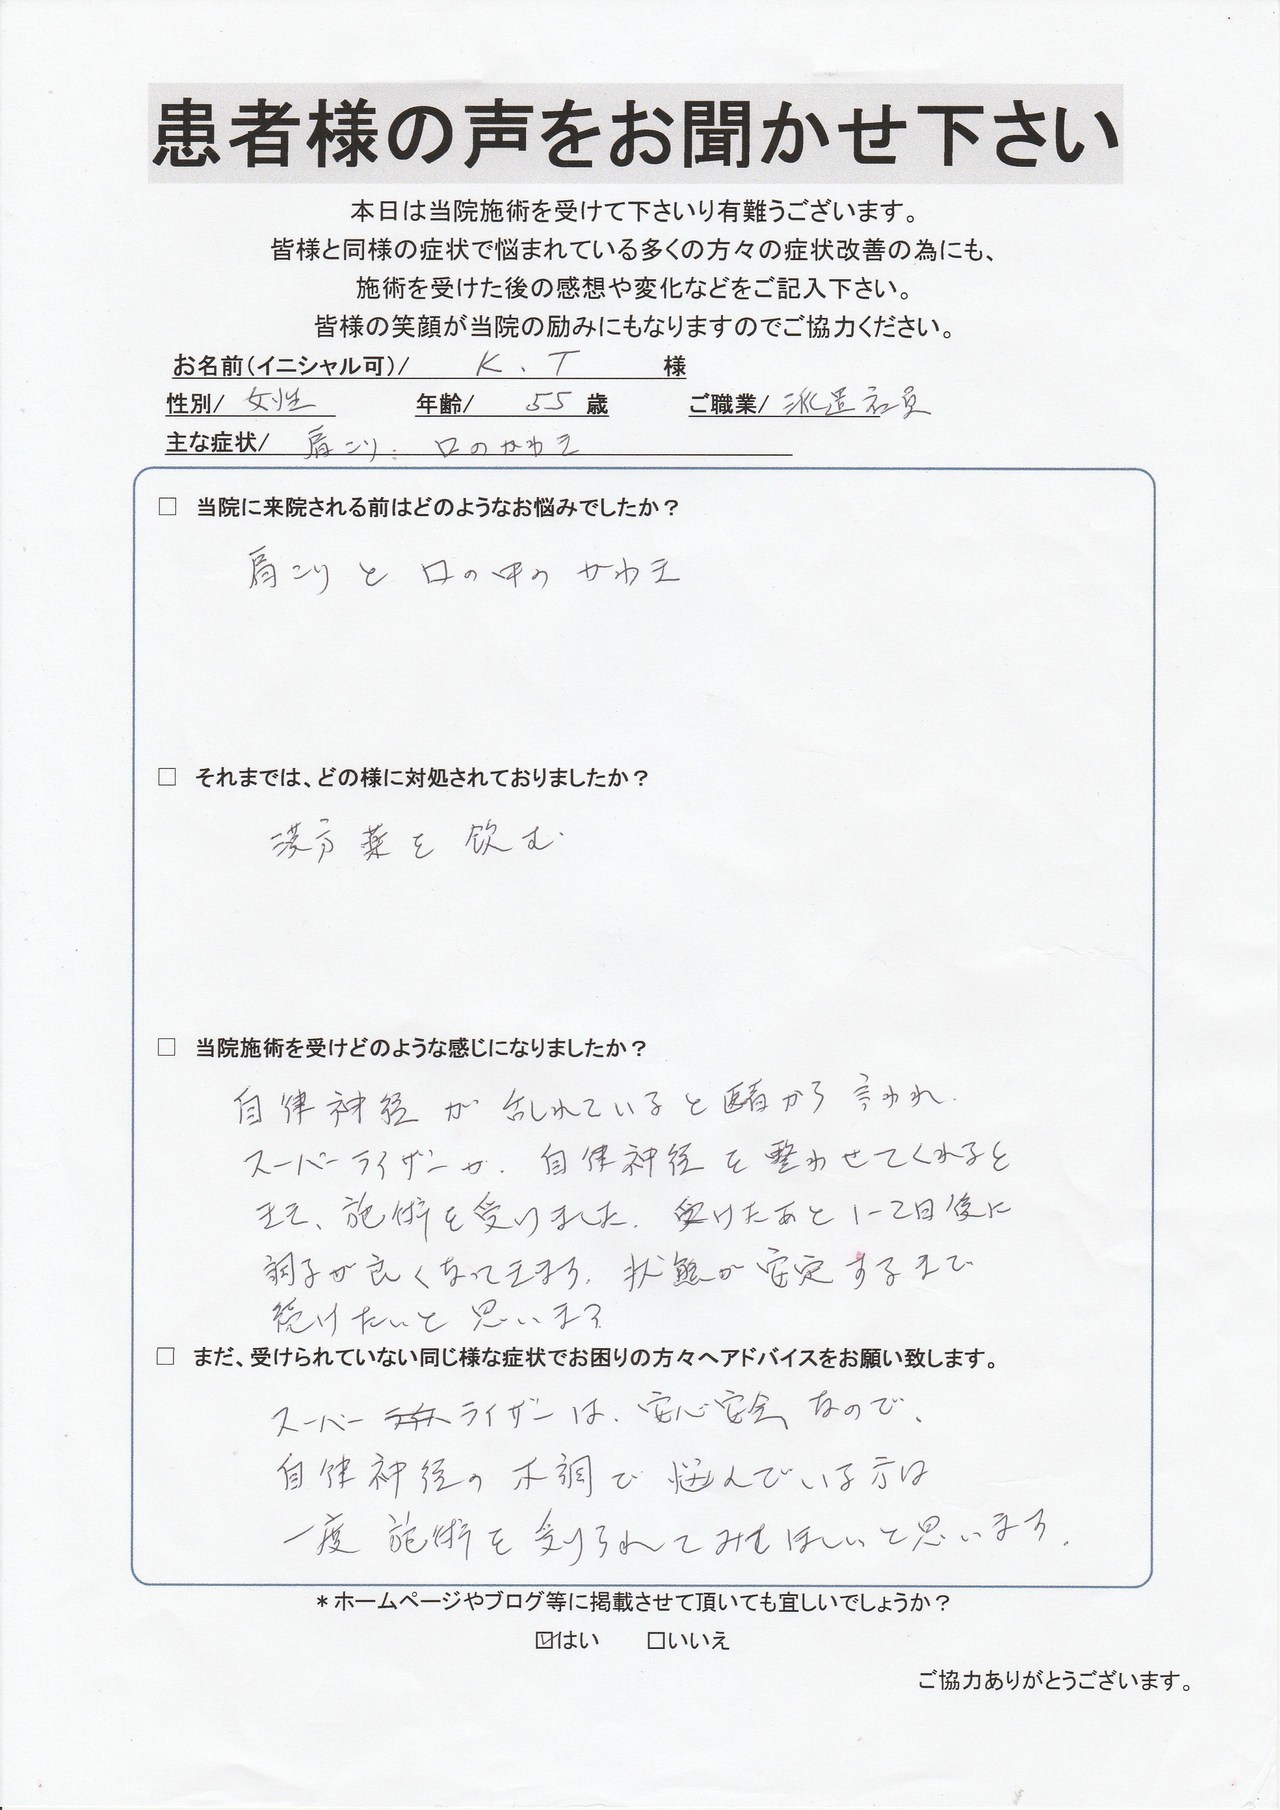 患者様の声をお聞かせ下さい
本日は当院施術を受けて下さいり有難うございます。
皆様と同様の症状で悩まれている多くの方々の症状改善の為にも、
施術を受けた後の感想や変化などをご記入下さい。
皆様の笑顔が当院の励みにもなりますのでご協力ください。
お名前(イニシャル可)/ K.T 様
性別/ 女性 年齢/ 55 歳 ご職業/ 派遣社員
主な症状/ 肩こり. 口のかわき
□ 当院に来院される前はどのようなお悩みでしたか？
肩こりと口の中のかわき
□ それまでは、どの様に対処されておりましたか？
漢方薬を飲む
□ 当院施術を受けどのような感じになりましたか？
自律神経が乱れていると医者から言われ.
スーパーライザーが.自律神経を整わせてくれると
きき、施術を受けました.受けたあと1-2日後に
調子が良くなってきます.状態が安定するまで
続けたいと思います
□ まだ、受けられていない同じ様な症状でお困りの方々へアドバイスをお願い致します。
スーパーライザーは.安心安全なので、
自律神経の不調で悩んでいる方は
一度施術を受けられてみてほしいと思います.
＊ホームページやブログ等に掲載させて頂いても宜しいでしょうか？
☑はい □いいえ
ご協力ありがとうございます。